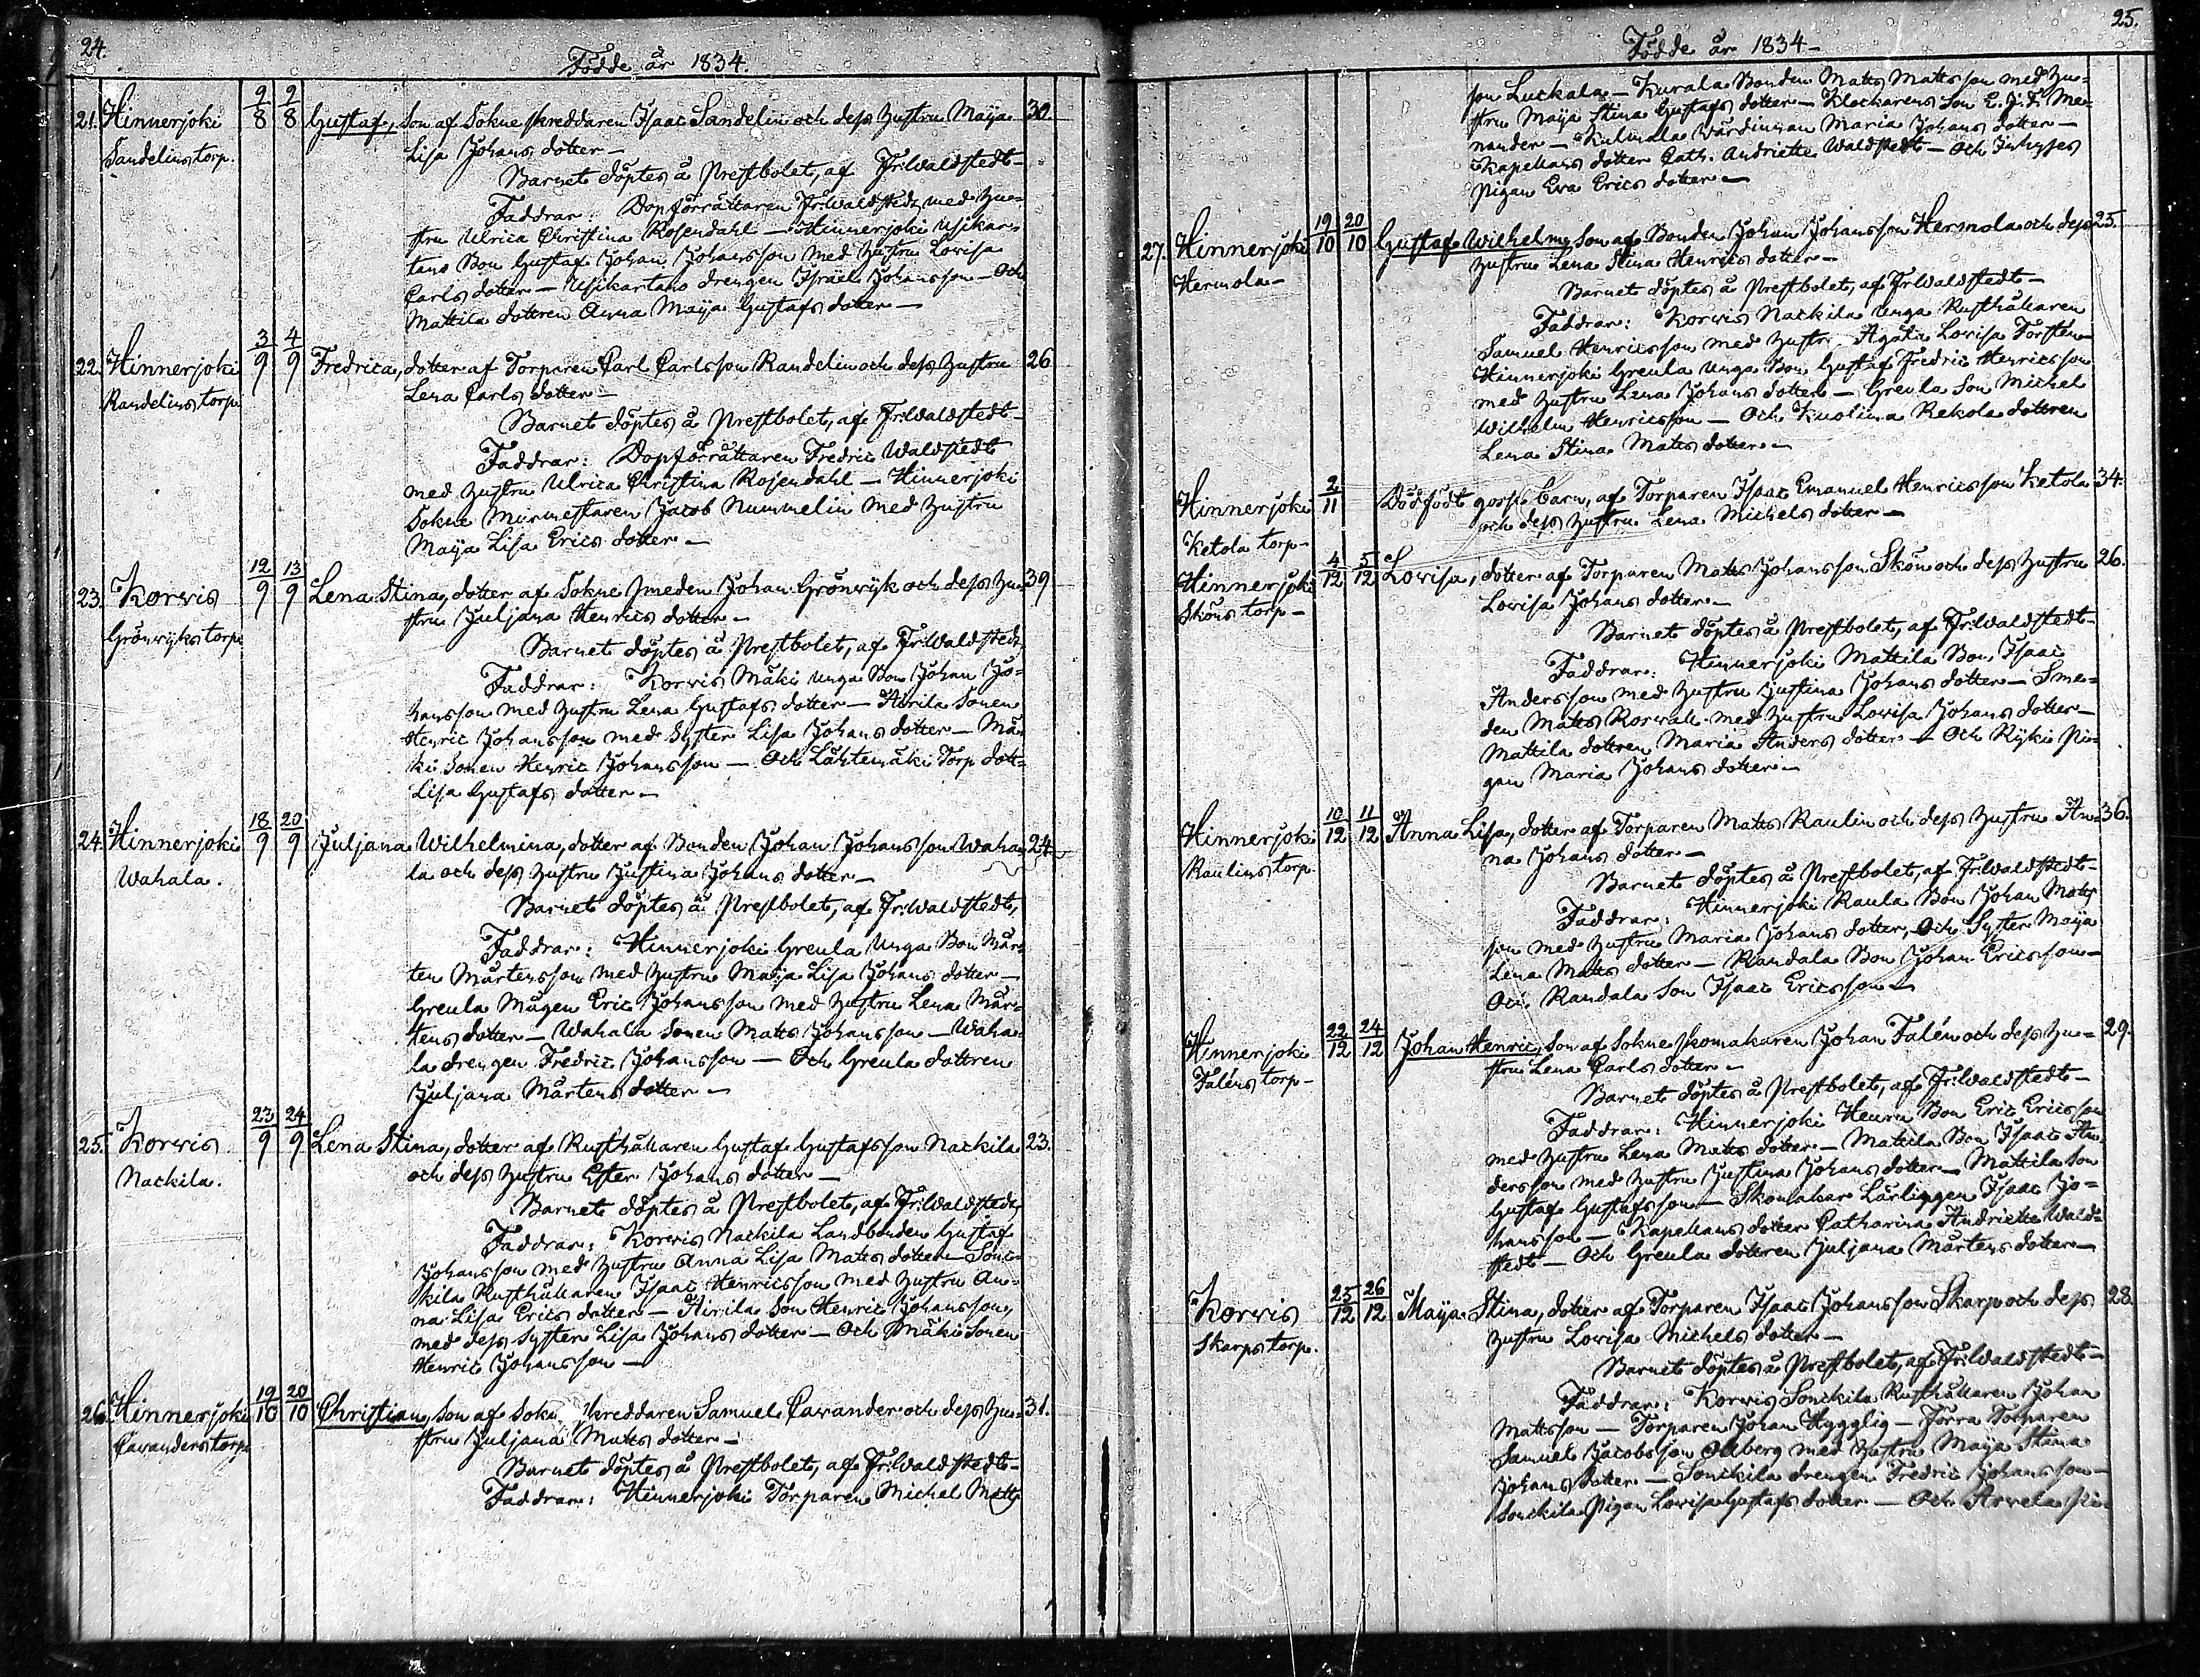 24.
Födde år 1834.
21. Hinnerjoki 9/8 9/8 Gustaf, Son af Sokne skreddaren Isaac Sandelin och dess hustru Maija 30.
Sandelins torp. Lisa Johans dotter —
Barnet döptes å Prestbolet, af Fr. Waldstedt —
Faddrar: Dopförrättaren Fr. Waldstedt med hu-
stru Ulrica Christina Rosendahl — Hinnerjoki Usikar-
tano Bon Gustaf Johan Johansson med hustru Lovisa
Carls dotter — Usikartano drengen Israël Johansson — Och
Mattila dottren Anna Maija Gustafs dotter —
22. Hinnerjoki 3/9 4/9 Fredrica, dotter af Torparen Carl Carlsson Randelin och dess hustru 26
Randelins torp. Lena Carls dotter —
Barnet döptes å Prestbolet, af Fr. Waldstedt —
Faddrar: Dopförrättaren Fredric Waldstedt
med hustru Ulrica Christina Rosendahl — Hinnerjoki
Sokne Murmestaren Jacob Nummelin med hustru
Maija Lisa Erics dotter —
23. Korvis 12/9 13/9 Lena Stina, dotter af Sokne Smeden Johan Grönvijk och dess hu- 39
Grönvijks torp. stru Juljana Henrics dotter —
Barnet döptes å Prestbolet, af Fr. Waldstedt,
Faddrar: Korvis Mäki unga Bon Johan Jo-
hansson med hustru Lena Gustafs dotter — Hirila Sonen
Henric Johansson med Syster Lisa Johans dotter — Mä-
ki Sonen Henric Johansson — Och Lähtenmäki Torp dott-
Lisa Gustafs dotter —
24. Hinnerjoki 18/9 20/9 Juljana Wilhelmina, dotter af Bonden Johan Johansson Waha- 24
Wahala. la och dess hustru Justina Johans dotter —
Barnet döptes å Prestbolet, af Fr. Waldstedt,
Faddrar: Hinnerjoki Greula Unga Bon Mår-
ten Mårtensson med hustru Maija Lisa Johans dotter —
Greula Mågen Eric Johansson med hustru Lena Mår-
tens dotter — Wahala Sonen Matts Johansson — Waha-
la drengen Fredric Johansson — Och Greula dottren
Juljana Mårtens dotter —
25. Korvis 23/9 24/9 Lena Stina, dotter af Rusthållaren Gustaf Gustafsson Nackila 23.
Nackila. och dess hustru Ester Johans dotter —
Barnet döptes å Prestbolet, af Fr. Waldstedt,
Faddrar: Korvis Nackila Landbonden Gustaf
Johansson med hustru Anna Lisa Matts dotter — Sonc-
kila Rusthållaren Isaac Henricsson med hustru An-
na Lisa Erics dotter — Hirila Son Henric Johansson,
med dess Syster Lisa Johans dotter — Och Mäki Sonen
Henric Johansson —
26. Hinnerjoki 19/10 20/10 Christian, Son af Sokne skreddaren Samuel Cavander och dess hu- 31.
Cavanders torp. stru Juljana Matts dotter —
Barnet döptes å Prestbolet, af Fr. Waldstedt —
Faddrar: Hinnerjoki Torparen Michel Matts
25.
Födde år 1834 —
son Luckala — Kurala Bonden Matts Mattsson med hu-
stru Maija Stina Gustafs dotter — Klockarens Son E. J. F. Me-
nander — Kulmala Wärdinnan Maria Johans dotter —
Kapellans dotter Cath. Andriette Waldstedt — Och Inhyses
Pigan Eva Erics dotter —
27. Hinnerjoki 19/10 20/10 Gustaf Wilhelm, Son af Bonden Johan Johansson Hermola och dess 25.
Hermola — hustru Lena Stina Henrics dotter —
Barnet döptes å Prestbolet, af Fr. Waldstedt —
Faddrar: Korvis Nackila Unga Rusthållaren
Samuel Henricsson med hustr. Agata Lovisa Forsten
Hinnerjoki Greula Unga Bon Gustaf Fredric Henricsson
med hustru Lena Johans dotter — Greula Son Michel
Wilhelm Henricsson — Och Kuolima Rekola dottren
Lena Stina Matts dotter —
Hinnerjoki 2/11 Dödfödt goss barn, af Torparen Isaac Emanuel Henricsson Ketola 34.
Ketola torp — och dess hustru Lena Michels dotter —
Hinnerjoki 4/12 5/12 Lovisa, dotter af Torparen Matts Johansson Skön och dess hustru 26.
Sköns torp — Lovisa Johans dotter —
Barnet döptes å Prestbolet, af Fr. Waldstedt —
Faddrar: Hinnerjoki Mattila Bon Isaac
Andersson med hustru Justina Johans dotter — Sme-
den Matts Korwall med hustru Lovisa Johans dotter —
Mattila dottren Maria Anders dotter — Och Kyki Pi-
gan Maria Johans dotter —
Hinnerjoki 10/12 11/12 Anna Lisa, dotter af Torparen Matts Raulin och dess hustru An- 36.
Raulins torp. na Johans dotter —
Barnet döptes å Prestbolet, af Fr. Waldstedt —
Faddrar: Hinnerjoki Raula Bon Johan Matts
son med hustru Maria Johans dotter, Och Syster Maija
Lena Matts dotter — Randala Bon Johan Ericsson —
Och Randala Son Isaac Ericsson —
Hinnerjoki 22/12 24/12 Johan Henric, Son af Sokne skomakaren Johan Falén och dess hu- 29.
Faléns torp — stru Lena Carls dotter —
Barnet döptes å Prestbolet, af Fr. Waldstedt —
Faddrar: Hinnerjoki Heuru Bon Eric Ericsson
med hustru Lena Matts dotter — Mattila Bon Isaac An-
dersson med hustru Justina Johans dotter — Mattila Son
Gustaf Gustafsson — Skomakar Lärlingen Isaac Jo-
hansson — Kapellans dotter Catharina Andriette Wald-
stedt — Och Greula dottren Juljana Mårtens dotter —
Korvis 25/12 26/12 Maija Stina, dotter af Torparen Isaac Johansson Skarp och dess 28.
Skarps torp. hustru Lovisa Michels dotter —
Barnet döptes å Prestbolet, af Fr. Waldstedt —
Faddrar: Korvis Sonckila Rusthållaren Johan
Mattsson — Torparen Johan Hygglig — Förra Torparen
Samuel Jacobsson Ollberg med hustru Maija Stina
Johans dotter — Sonckila drengen Fredric Johansson —
Sonckila Pigan Lovisa Gustafs dotter — Och Arvela Pi-